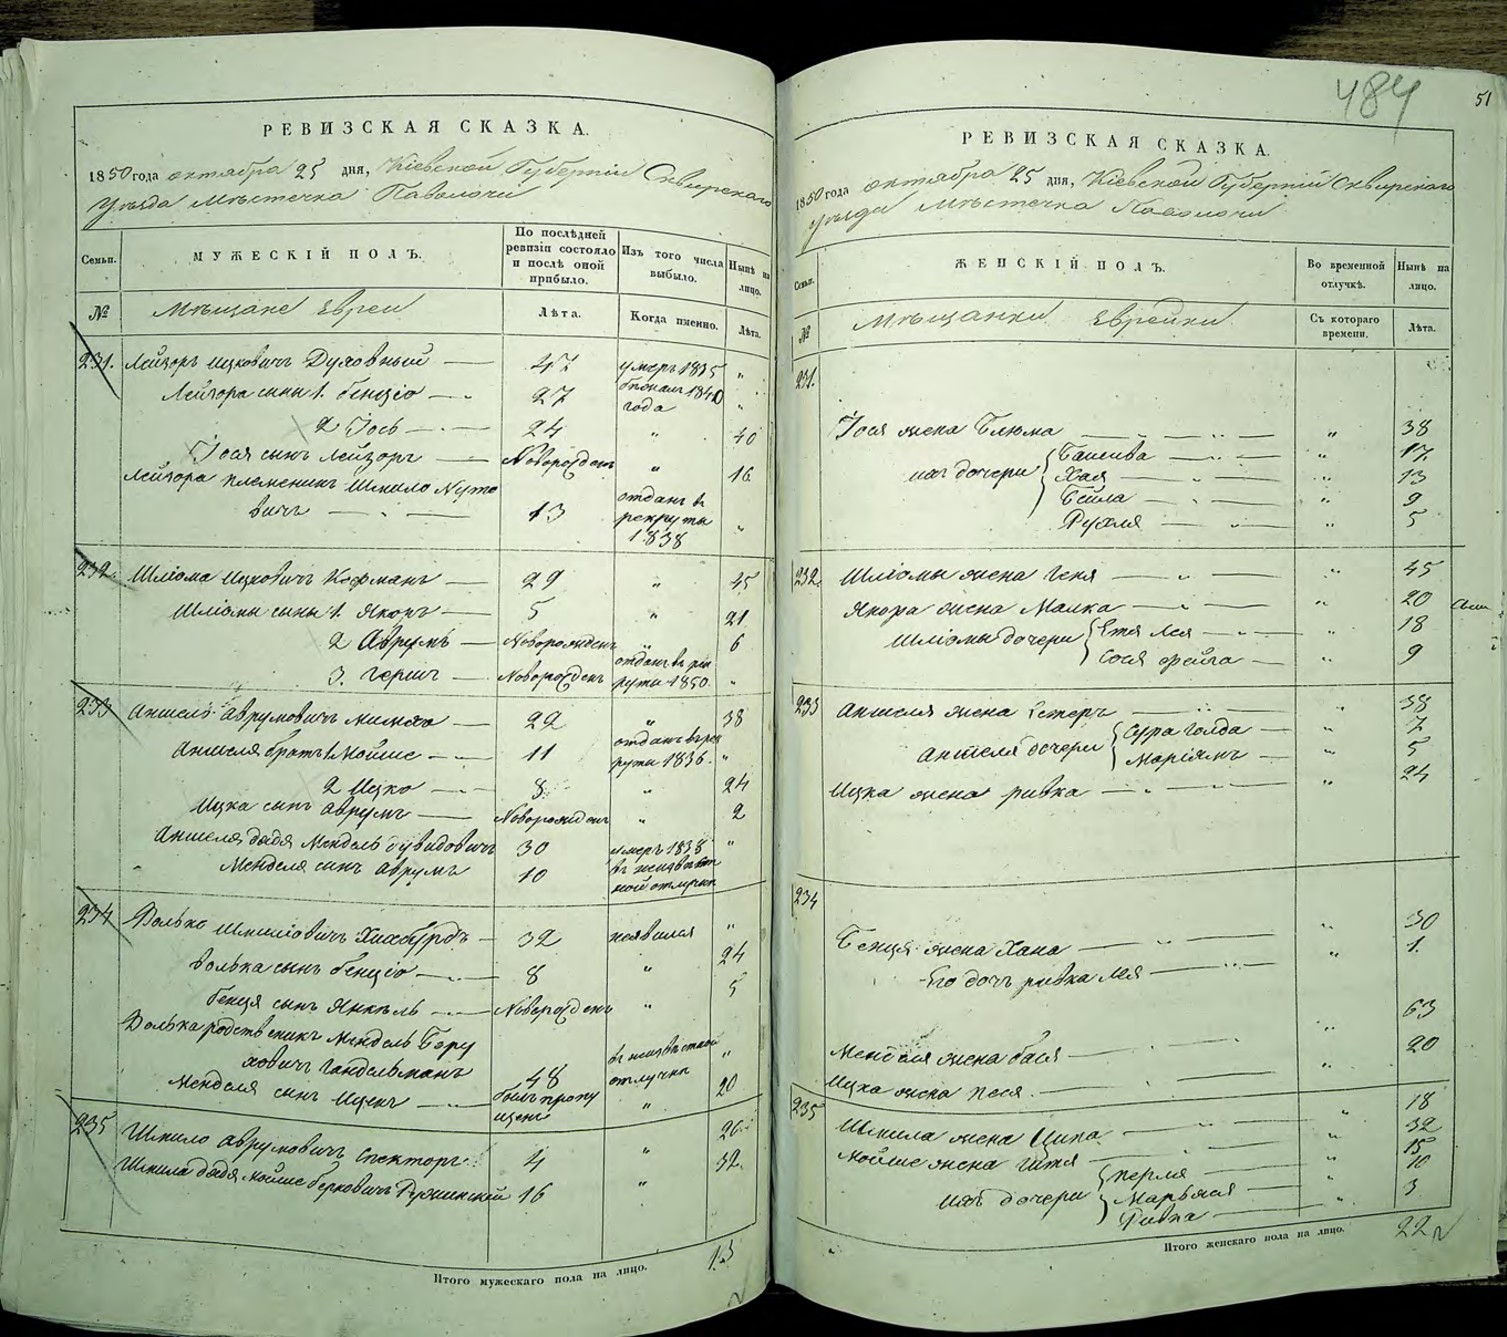 РЕВИЗСКАЯ СКАЗКА.
1850 года октября 25 дня, Кіевской Губерніи Сквирскаго
уѣзда мѣстечка Паволочи
Семьи.
МУЖЕСКІЙ ПОЛЪ.
По послѣдней ревизіи состояло и послѣ оной прибыло.
Изъ того числа выбыло.
Нынѣ на лицо.
№
Мѣщане Евреи
Лѣта.
Когда именно.
Лѣта.
231. Лейзоръ Ицковичъ Духовный — 47 умеръ 1835 "
Лейзора сыны 1. Бенціо — 27 1840 года "
2 Іось — 24 " 40
Іося сынъ Лейзоръ — Новорожденъ " 16
Лейзора племеникъ Шмило Нуто
вичъ — 13 отданъ въ рекруты 1838 "
232. Шліома Ицковичъ Кофманъ — 29 " 45
Шліомы сыны 1. Янкоръ — 5 " 21
2 Аврумъ — Новорожденъ " 6
3. Гершъ — Новорожденъ отданъ въ рек руты 1850 "
233 Аншель Аврумовичъ — 22 " 38
Аншеля братъ 1 Мойше — 11 отданъ въ рек руты 1836. "
2 Ицко — 8 " 24
Ицка сынъ Аврумъ — Новорожденъ " 2
Аншеля дядя Мендель Дувидовичъ 30 умеръ 1838 "
Менделя сынъ Аврумъ 10 въ неизвѣст ной отлучкѣ
234 Волько Шмиліовичъ — 32 неявился "
Волька сынъ Бенціо — 8 " 24
Бенця сынъ Янкель — Новорожденъ " 5
Волька родственикъ Мендель Беру
ховичъ Гандельманъ 48 въ неизвѣстной отлучкѣ "
Менделя сынъ Ицекъ — былъ пропу щенъ " 20
235 Шмило Аврумовичъ Спекторъ 4 " 20
Шмила дядя Мойше Берковичъ Ружинскій 16 " 32
Итого мужескаго пола на лицо. 13
484
51
РЕВИЗСКАЯ СКАЗКА.
1850 года октября 25 дня, Кіевской Губерніи Сквирскаго
уѣзда мѣстечка Паволочи
Семьи.
ЖЕНСКІЙ ПОЛЪ.
Во временной отлучкѣ.
Нынѣ на лицо.
№
Мѣщанки Еврейки
Съ котораго времени.
Лѣта.
231.
Іося жена Блюма — " 38
ихъ дочери Башива — " 17
Хая — " 13
Бейла — " 9
Рухля — " 5
232. Шліомы жена Геня — " 45
Янкора жена Малка — " 20
Шліомы дочери Етя Лея — " 18
Сося Фейга — " 9
233 Аншеля жена Естеръ — " 38
Аншеля дочери Сура Голда — " 7
Маріямъ — " 5
Ицка жена Ривка — " 24
234
Бенця жена Хана — " 30
Его дочъ Ривка Лея — " 1.
Менделя жена Бася — " 63
Ицка жена Песя — " 20
235 Шмила жена Ципа — " 18
Мойше жена Гитя — " 32
ихъ дочери Перля — " 15
Марьяся — " 10
Ривка — " 3
Итого женскаго пола на лицо. 22